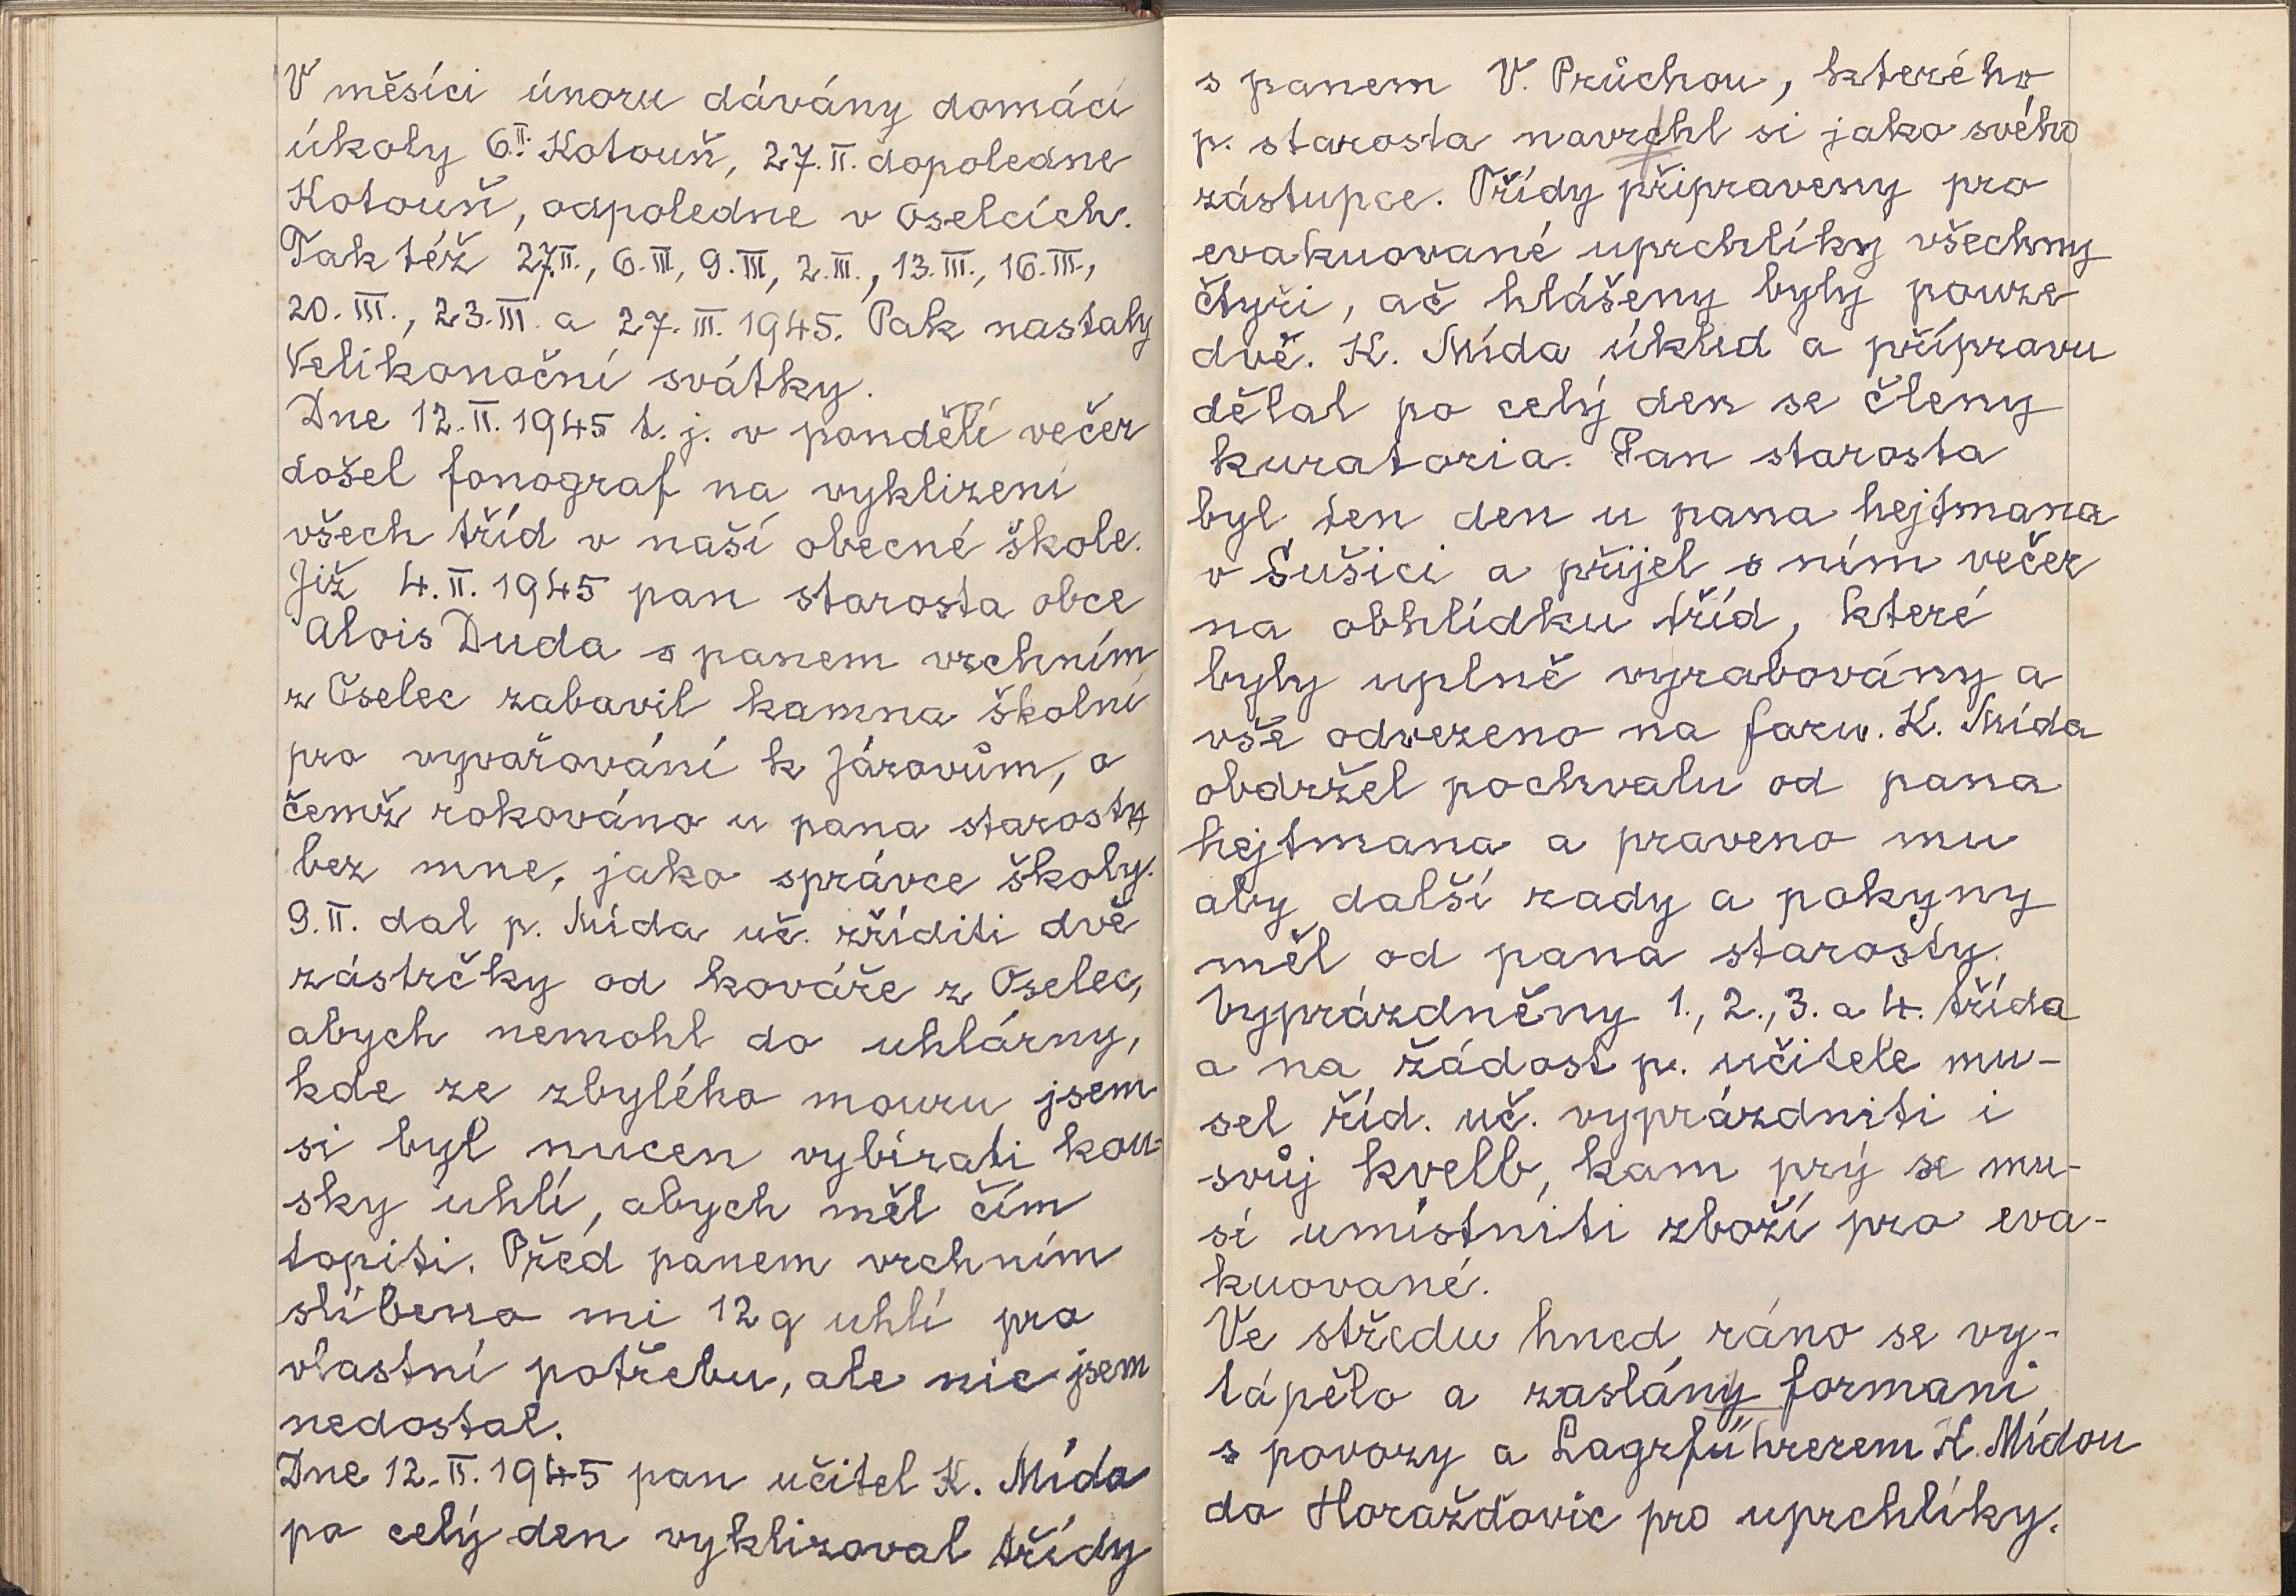 V měsíci únoru dávány domácí
úkoly 6.II. Kotouň, 27.II. dopoledne
Kotouň, odpoledne v Oselcích.
Tak též 27.II., 6.III, 9.III, 2.III., 13.III., 16.III,
20.III., 23.III. a 27.III. 1945. Pak nastaly
Velikonoční svátky.
Dne 12.II.1945 t.j. v pondělí večer
došel fonograf na vyklizení
všech tříd v naší obecné škole.
Již 4.II.1945 pan starosta obce
Alois Duda s panem vrchním
z Oselec zabavil kamna školní
pro vyvařování k Járovům, o
čemž rokováno u pana starosty
bez mne, jako správce školy.
9.II. dal p. Mída uč. zříditi dvě
zástrčky od kováře z Oselec,
abych nemohl do uhlárny,
kde ze zbylého mouru jsem
si byl nucen vybírati kou-
sky uhlí, abych měl čím
topiti. Před panem vrchním
slíbeno mi 12 q uhlí pro
vlastní potřebu, ale nic jsem
nedostal.
Dne 12.II.1945 pan učitel K. Mída
po celý den vyklizoval třídy
s panem V. Průchou, kterého
p. starosta navrchl si jako svého
zástupce. Třídy připraveny pro
evakuované uprchlíky všechny
čtyři, ač hlášeny byly pouze
dvě. K. Mída úklid a přípravu
dělal po celý den se členy
kuratoria. Pan starosta
byl ten den u pana hejtmana
v Sušici a přijel s ním večer
na obhlídku tříd, které
byly uplně vyrabovány a
vše odvezeno na faru. K. Mída
obdržel pochvalu od pana
hejtmana a praveno mu
aby další rady a pokyny
měl od pana starosty.
Vyprázdněny 1., 2., 3. a 4. třída
a na žádost p. učitele mu-
sel říd. uč. vyprázdniti i
svůj kvelb, kam prý se mu-
sí umístniti zboží pro eva-
kuované.
Ve středu hned ráno se vy-
tápělo a zaslány formani
s povozy a Lagrführerem K. Mídou
do Horažďovic pro uprchlíky.